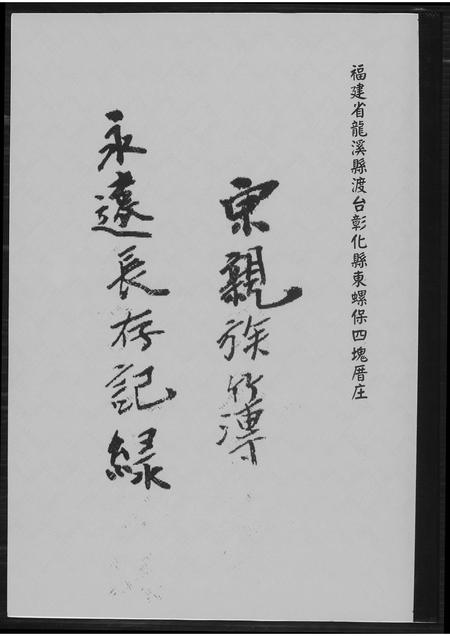 福建省龍溪縣渡台彰化縣東螺保四塊厝庄
宗親族簿
永遠長存記録